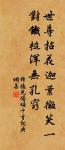 世尊拈花迦葉微笑一
對鐵槌渾無孔竅